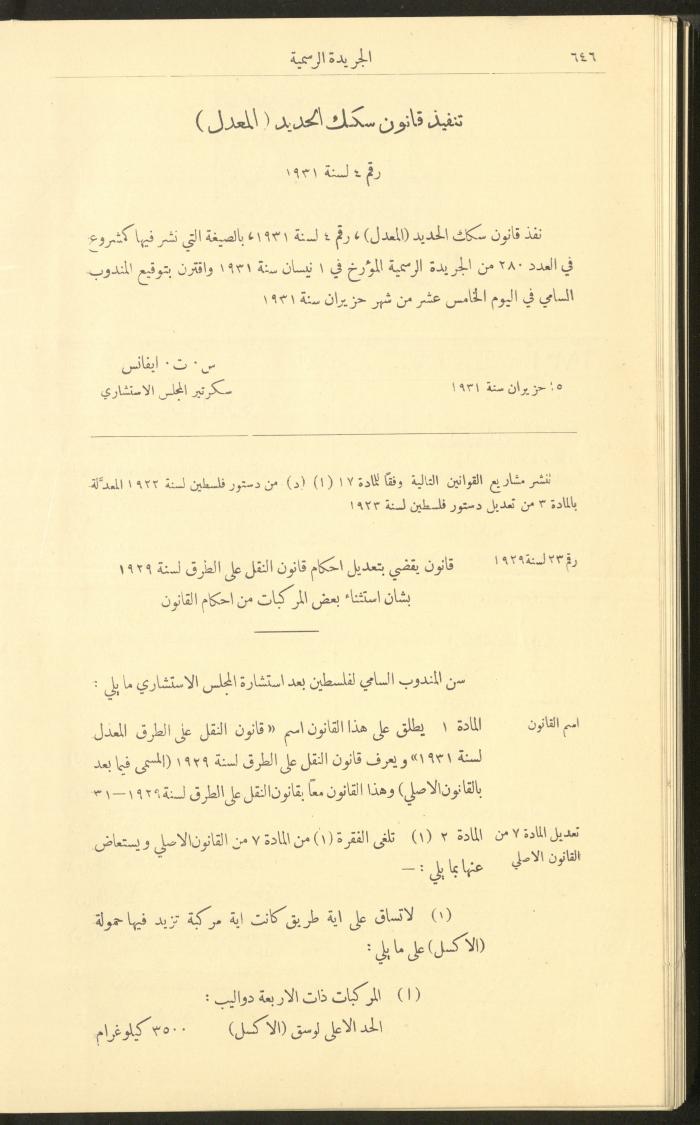 ٦٤٦ الجريدة الرسمية
تنفيذ قانون سكك الحديد (المعدل)
رقم ٤ لسنة ١٩٣١
نفذ قانون سكك الحديد (المعدل)، رقم ٤ لسنة ١٩٣١، بالصيغة التي نشر فيها كمشروع
في العدد ٢٨٠ من الجريدة الرسمية المؤرخ في ١ نيسان سنة ١٩٣١ واقترن بتوقيع المندوب
السامي في اليوم الخامس عشر من شهر حزيران سنة ١٩٣١
س٠ ت٠ ايفانس
١٥ حزيران سنة ١٩٣١ سكرتير المجلس الاستشاري
ننشر مشاريع القوانين التالية وفقًا للمادة ١٧ (١) (د) من دستور فلسطين لسنة ١٩٢٢ المعدّلة
بالمادة ٣ من تعديل دستور فلسطين لسنة ١٩٢٣
رقم ٢٣ لسنة ١٩٢٩ قانون يقضي بتعديل احكام قانون النقل على الطرق لسنة ١٩٢٩
بشان استثناء بعض المركبات من احكام القانون
سن المندوب السامي لفلسطين بعد استشارة المجلس الاستشاري ما يلي :
اسم القانون المادة ١ يطلق على هذا القانون اسم «قانون النقل على الطرق المعدل
لسنة ١٩٣١» ويعرف قانون النقل على الطرق لسنة ١٩٢٩ (المسمى فيما بعد
بالقانون الاصلي) وهذا القانون معًا بقانون النقل على الطرق لسنة ١٩٢٩—٣١
تعديل المادة ٧ من المادة ٢ (١) تلغى الفقرة (١) من المادة ٧ من القانون الاصلي ويستعاض
القانون الاصلي عنها بما يلي : —
(١) لا تساق على اية طريق كانت اية مركبة تزيد فيها حمولة
(الاكسل) على ما يلي :
(ا) المركبات ذات الاربعة دواليب :
الحد الاعلى لوسق (الاكسل) ٣٥٠٠ كيلوغرام